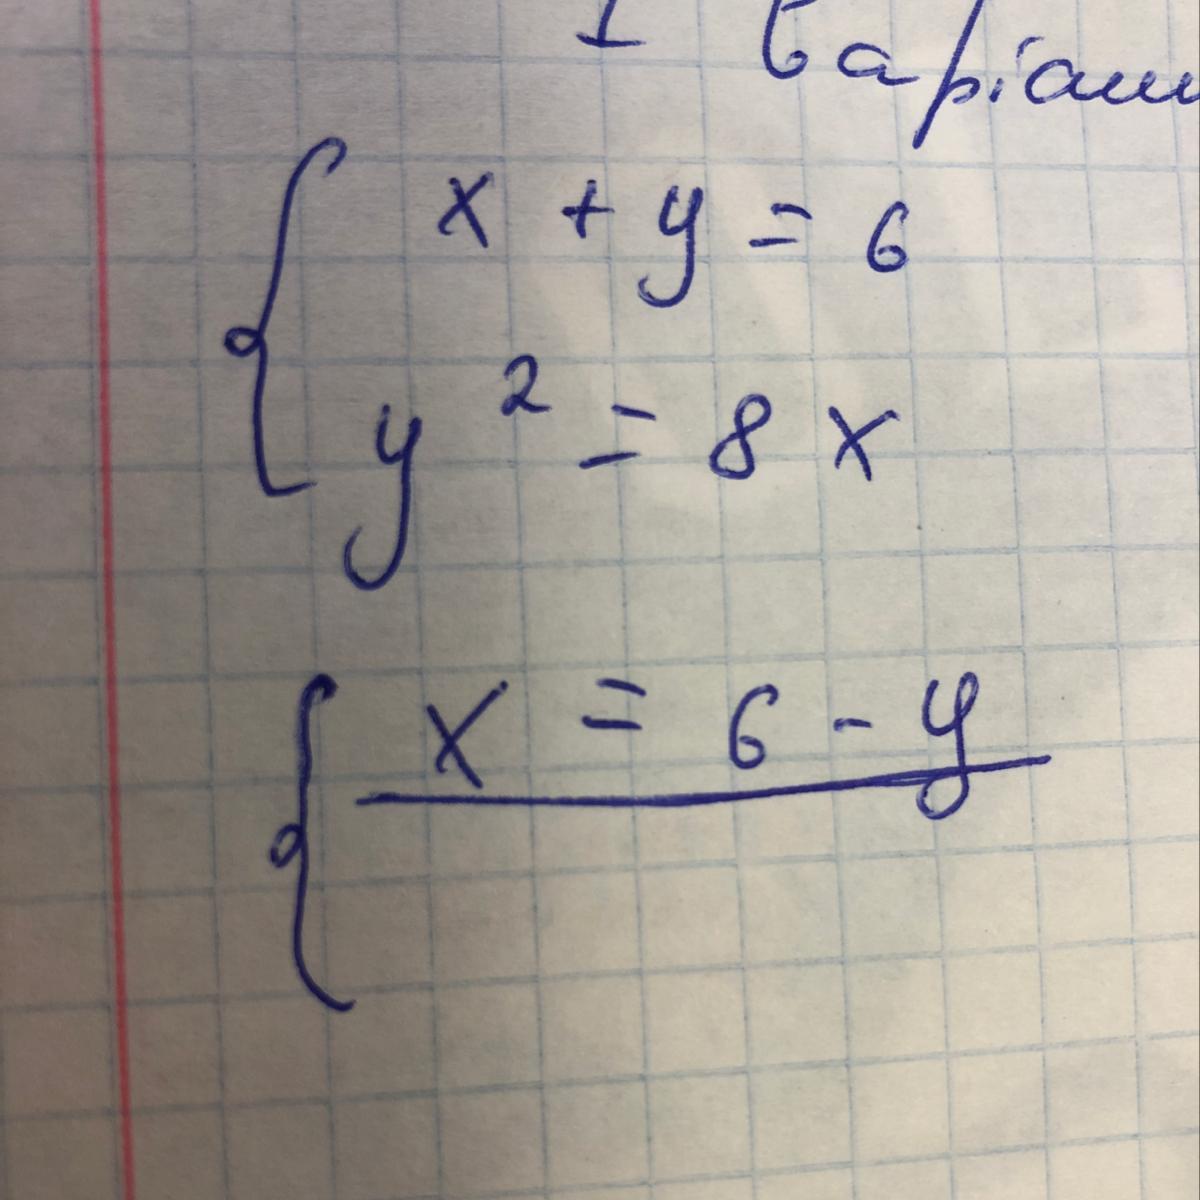 I варіант
x + y = 6
y² = 8x
x = 6 - y